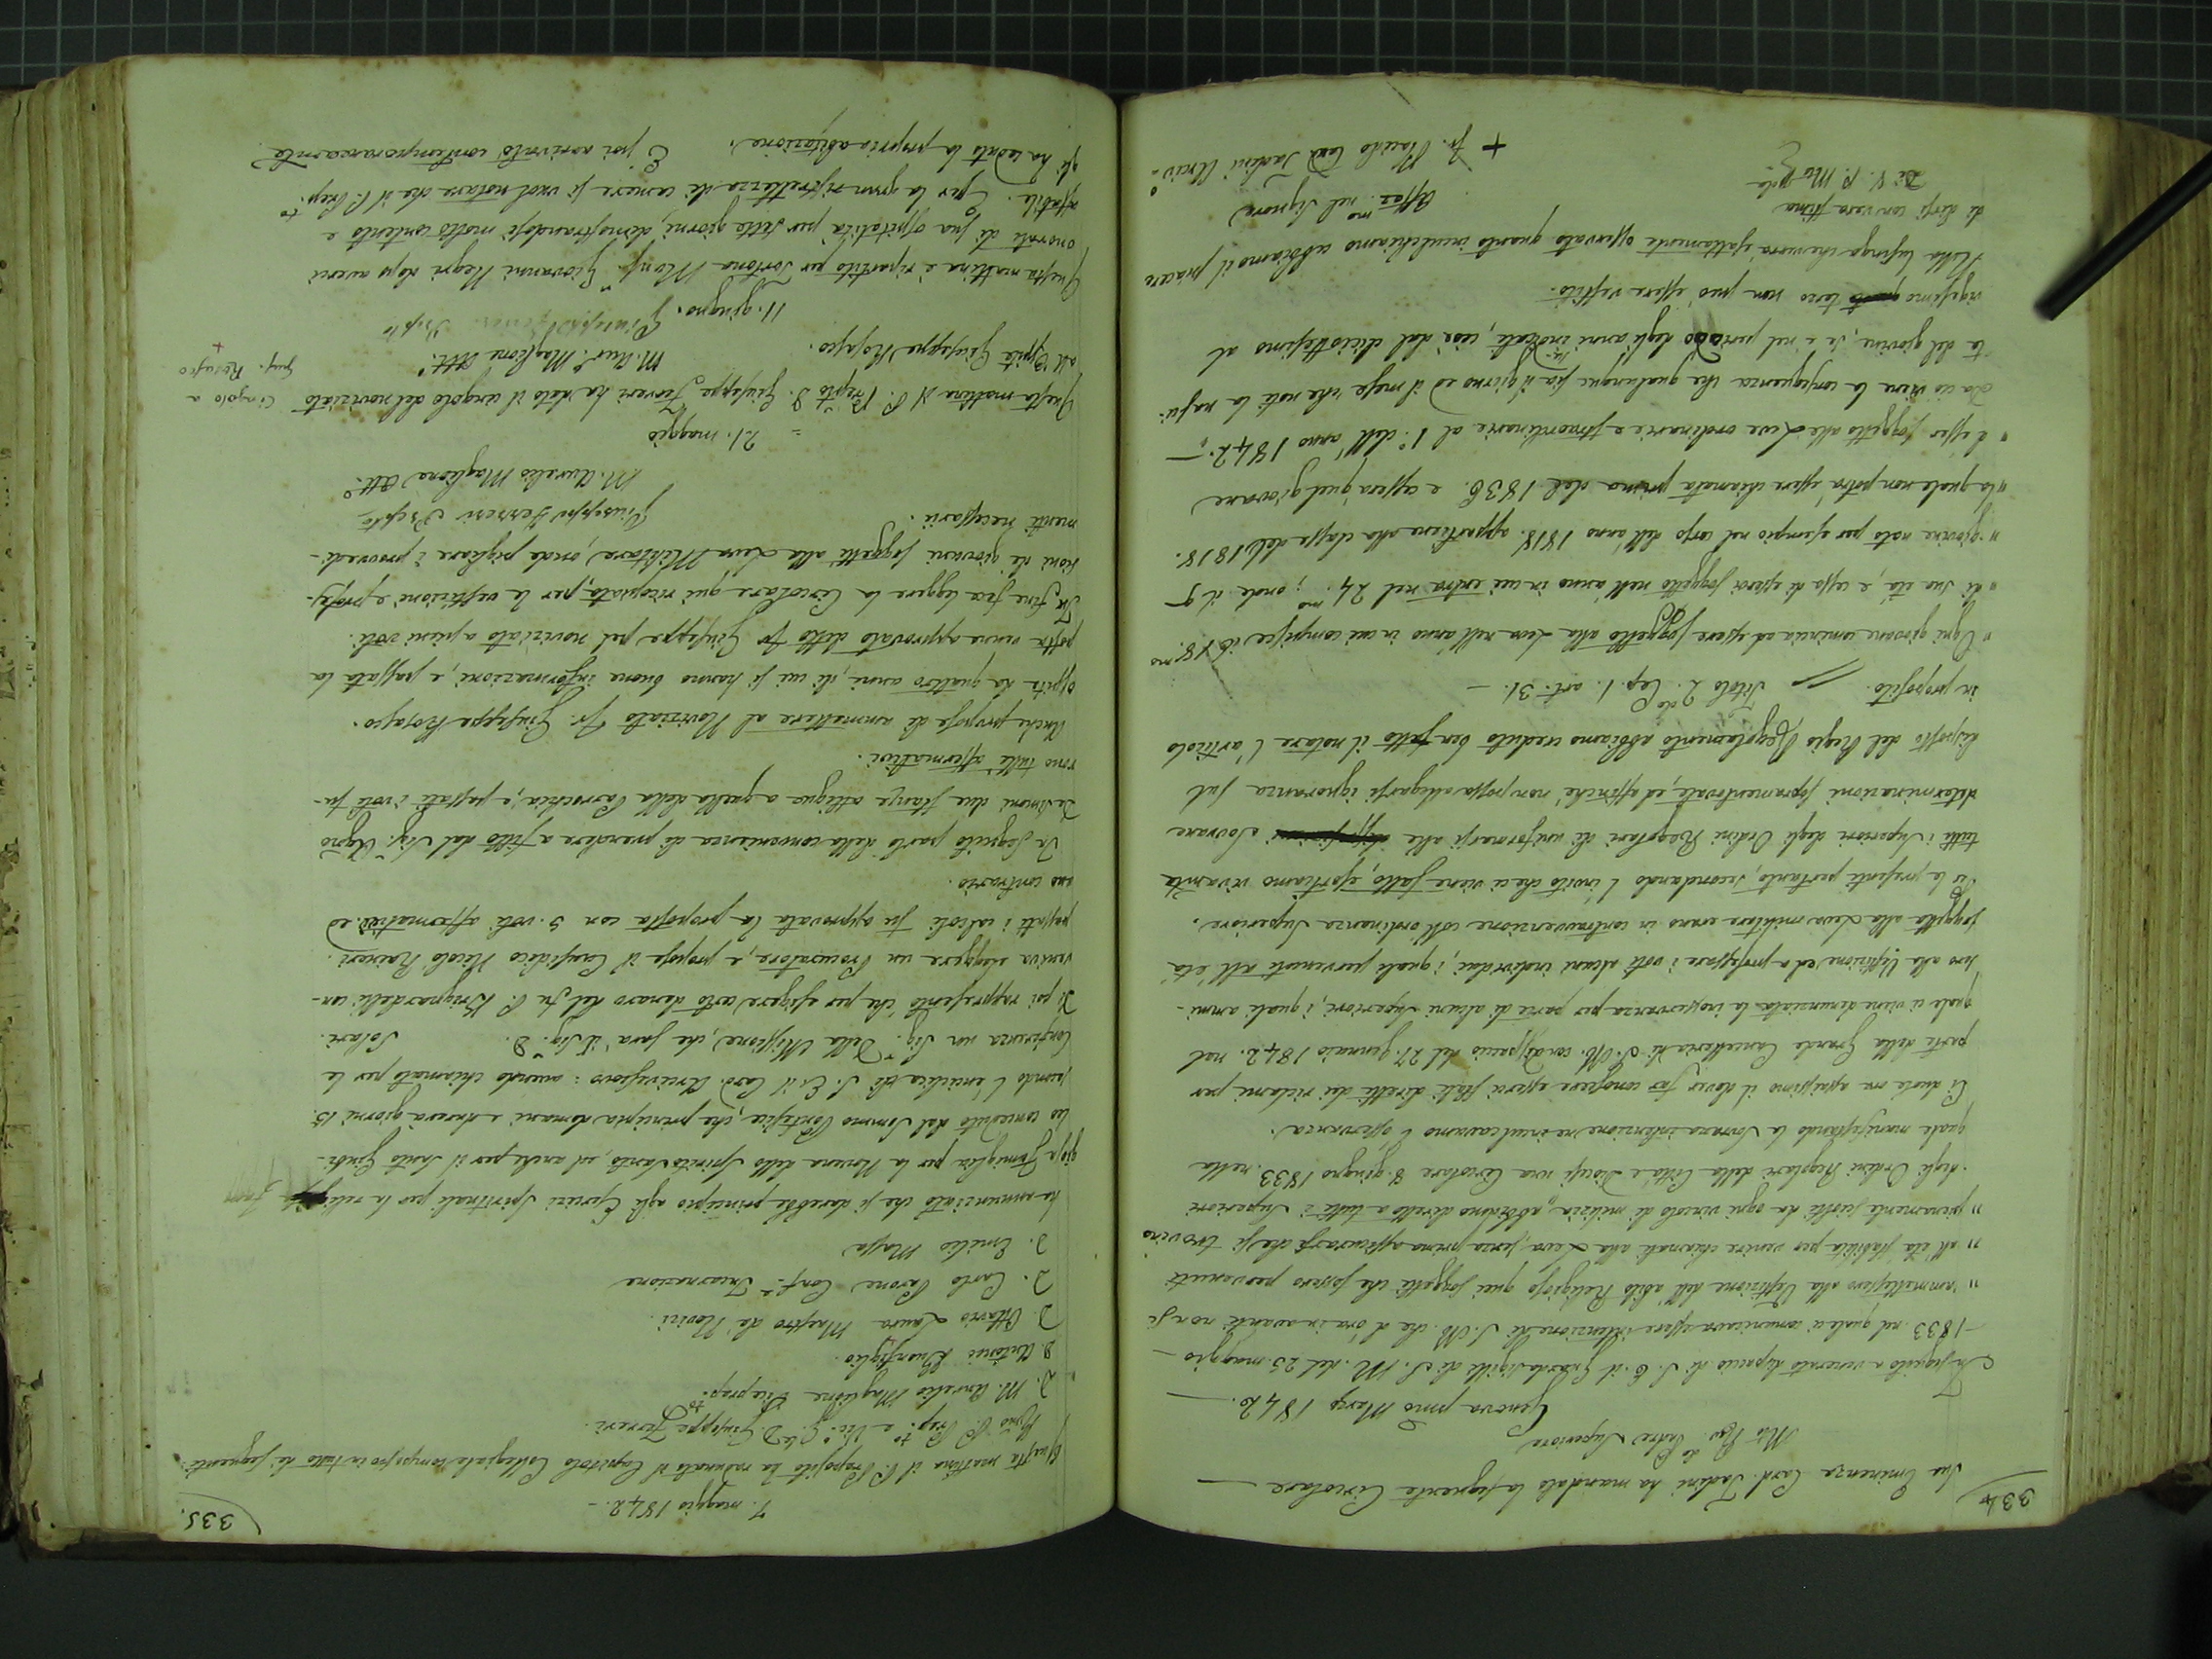 334
Sua Eminenza Card. Tadini ha mandato la seguente Circolare —
Mto Rdo Padre Superiore
Genova pmo Marzo 1842. —
In seguito a venerato dispaccio di S. E. il Guardasigilli di S. M. del 25. maggio —
— 1833. nel quale ci comunicava essere intenzione di S. M. che d'ora in avanti non si
„ ammettessero alla Vestizione dell'abito Religioso quei soggetti che fossero pervenuti
„ all'età stabilita per venire chiamati alla Leva, senza prima assicurarsi che si trovino
„ pienamente sciolti da ogni vincolo di milizia, abbiamo diretto a tutti i Superiori
degli Ordini Regolari della Città e Diocesi una Circolare 8. giugno 1833. nella
quale manifestando la Sovrana intenzione ne inculcavamo l'osservanza.
Ci duole ora assaissimo il dover far conoscere esserci stati diretti dei richiami per
parte della Grande Cancelleria di S. M. con dispaccio del 27. gennaio 1842. nel
quale ci viene denunziata la inosservanza per parte di alcuni Superiori, i quali ammi-
sero alla Vestizione, ed a professare i voti alcuni individui, i quali pervenuti all'età
soggetta alla Leva militare erano in contravvenzione coll'ordinanza Superiore.
Per le presenti pertanto, secondando l'invito che ci viene fatto, esortiamo vivamente
tutti i Superiori degli Ordini Regolari di uniformarsi alle Sovrane
determinazioni sopramentovate, ed affinchè non possa allegarsi ignoranza sul
disposto del Regio Regolamento, abbiamo creduto ben fatto il notare l'articolo
in proposito. // Titolo 2do Cap. 1. art. 31. —
„ Ogni giovane comincia ad essere soggetto alla Leva nell'anno in cui compisce il 18.mo
„ di sua età, e cessa di esservi soggetto nell'anno in cui entra nel 24.mo; onde il g
„ giovine nato per esempio nel corso dell'anno 1818. apparteneva alla classe del 1818.
„ la quale non potrà essere chiamata prima del 1836. e cesserà quel giovane
„ d'esser soggetto alle Leve ordinarie e straordinarie al 1.° dell'anno 1842. „ —
Da ciò viene la conseguenza che qualunque sia il giorno ed il mese che noti la nasci-
ta del giovine, se è nel periodo degli anni indicati, cioè dal diciottesimo al
vigesimo terzo non può essere vestito.
Nella lusinga che verrà esattamente osservato quanto inculchiamo abbiamo il piacere
di dirsi con vera stima
Di V. P. Mto Rda
Affez.mo nel Signore
+ Fr. Placido Card. Tadini Arciv.°
335.
7. maggio 1842. —
Questa mattina il P. Preposito ha radunato il Capitolo Collegiale composto in tutto di seguenti:
Rmo P. Prep.to e Vic. Gle D. Giuseppe Ferreri.
D. M. Aurelio Maglione Viceprep.to
D. Antonio Buonfiglio.
D. Ottavio Laura Maestro de' Novizi.
D. Carlo Pavone Conf.re Incarnazione
D. Emilio Massa
ha annunziato che si darebbe principio agli Esercizi Spirituali per la religiosa
Famiglia per la Novena dello Spirito Santo, ed anche per il Santo Giubi-
leo conceduto dal Sommo Pontefice, che principia domani e durerà giorni 15.
giusta l'enciclica di S. E. il Card. Arcivescovo: avendo chiamato per le
Conferenze un Sig.re della Missione, che sarà il Sig.r D. Solari.
Si poi rappresentò che per esigere certo denaro del fu P. Brignardelli con-
veniva eleggere un Procuratore, e propose il Causidico Nicolò Raineri.
passati i calcoli fu approvata la proposta con 5. voti affermativi, ed
uno contrario.
In seguito parlò della convenienza di prendere a fitto dal Sig.r Agno
Desimoni due stanze attigue a quella della Parrochia, e passati i voti fu-
rono tutti affermativi.
Anche propose di ammettere al Noviziato Fr. Giuseppe Rosasco.
ospite da quattro anni, di cui si hanno buone informazioni, e passata la
posta venne approvato detto Fr. Giuseppe pel noviziato a pieni voti.
In fine fece leggere la Circolare qui ricopiata, per le vestizioni e profes-
sioni de' giovani soggetti alla Leva Militare, onde pigliare i provvedi-
menti necessarii.
Giuseppe Ferreri Prep.to
M. Aurelio Maglione Att.°
= 21. maggio
Questa mattina il P. Prep.to D. Giuseppe Ferreri ha dato il cingolo del noviziato
all'Ospite Giuseppe Rosasco.
Cingolo a
Gius. Rosasco
+
M. Aur.° Maglione Att.°
Giuseppe Ferreri Prep.to
11. giugno.
Questa mattina è ripartito per Tortona Mons.r Giovanni Negri dopo averci
onorati di sua ospitalità per sette giorni, dimostrandosi molto contento e
affabile. Per la gran ristrettezza di camere si vuol notare che il P. Prep.to
gli ha ceduto la propria abitazione. È poi arrivato contemporaneamente